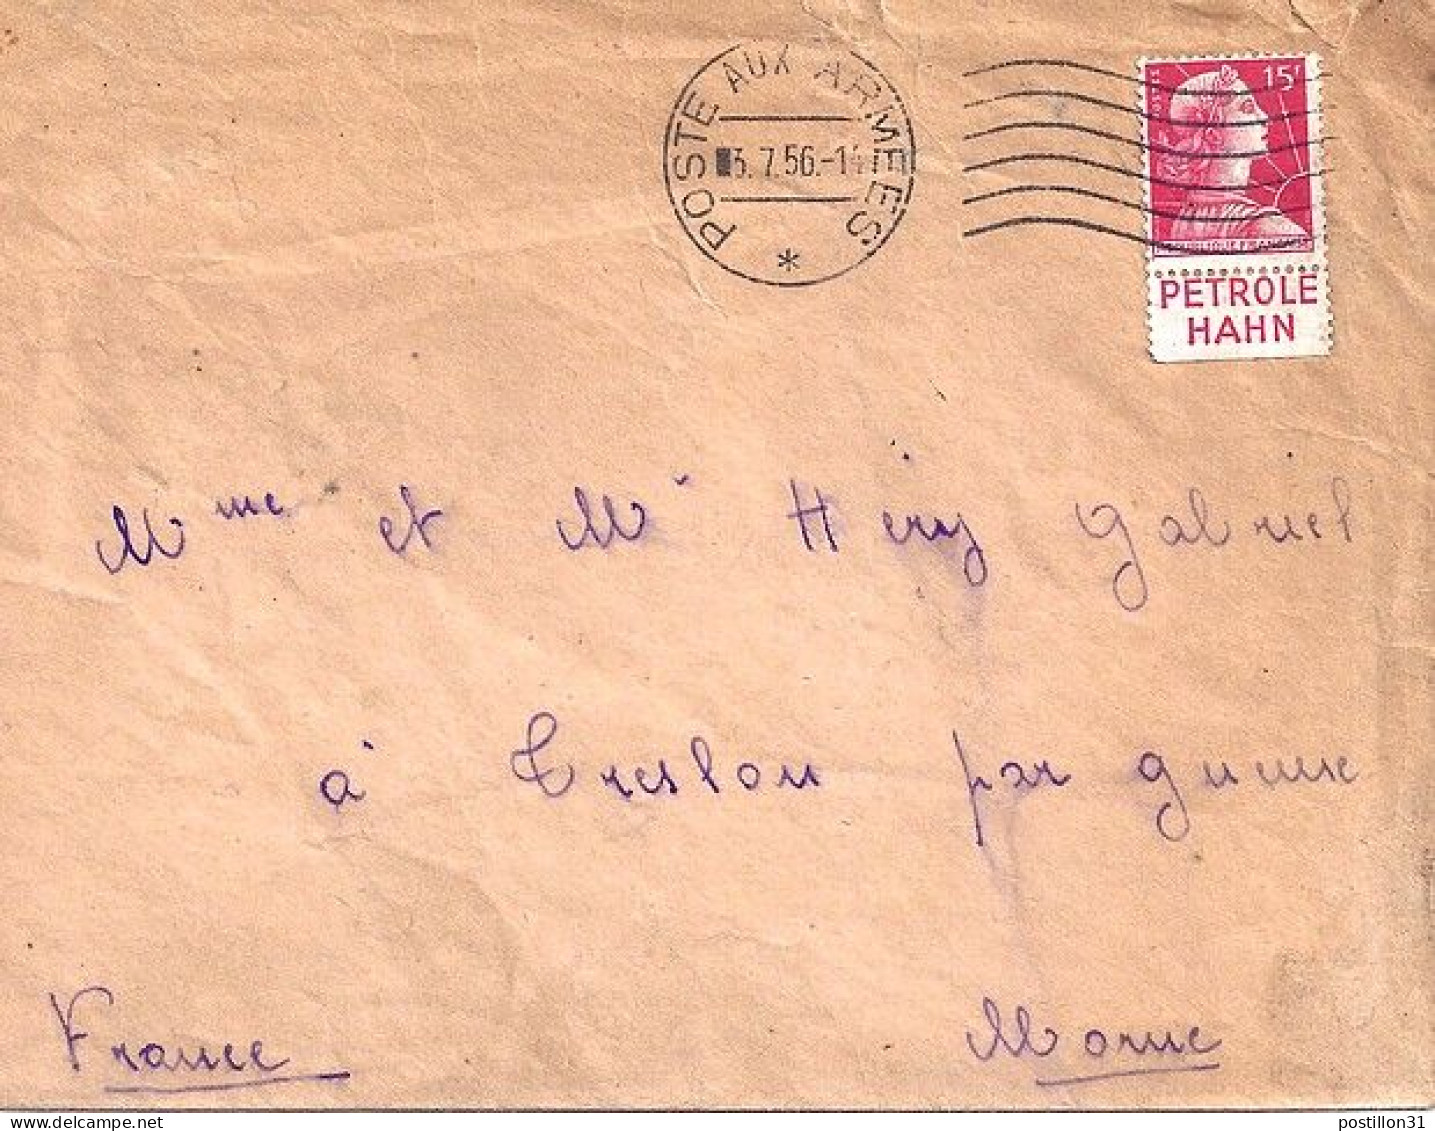 POSTE AUX ARMEES
3.7.56.-14
*
POSTES
15F
REPUBLIQUE FRANCAISE
PETROLE
HAHN
Mme et Mr Héry Gabriel
à Treslon par Gueux
France
Marne
postillon31